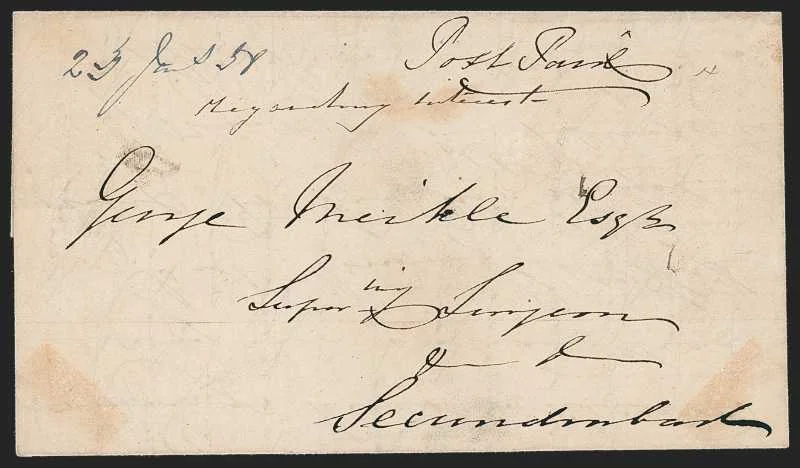 23 Jany 58 Post Paid
Regarding interest
George Meikle Esqr
Super ing Surgeon
Secunderabad